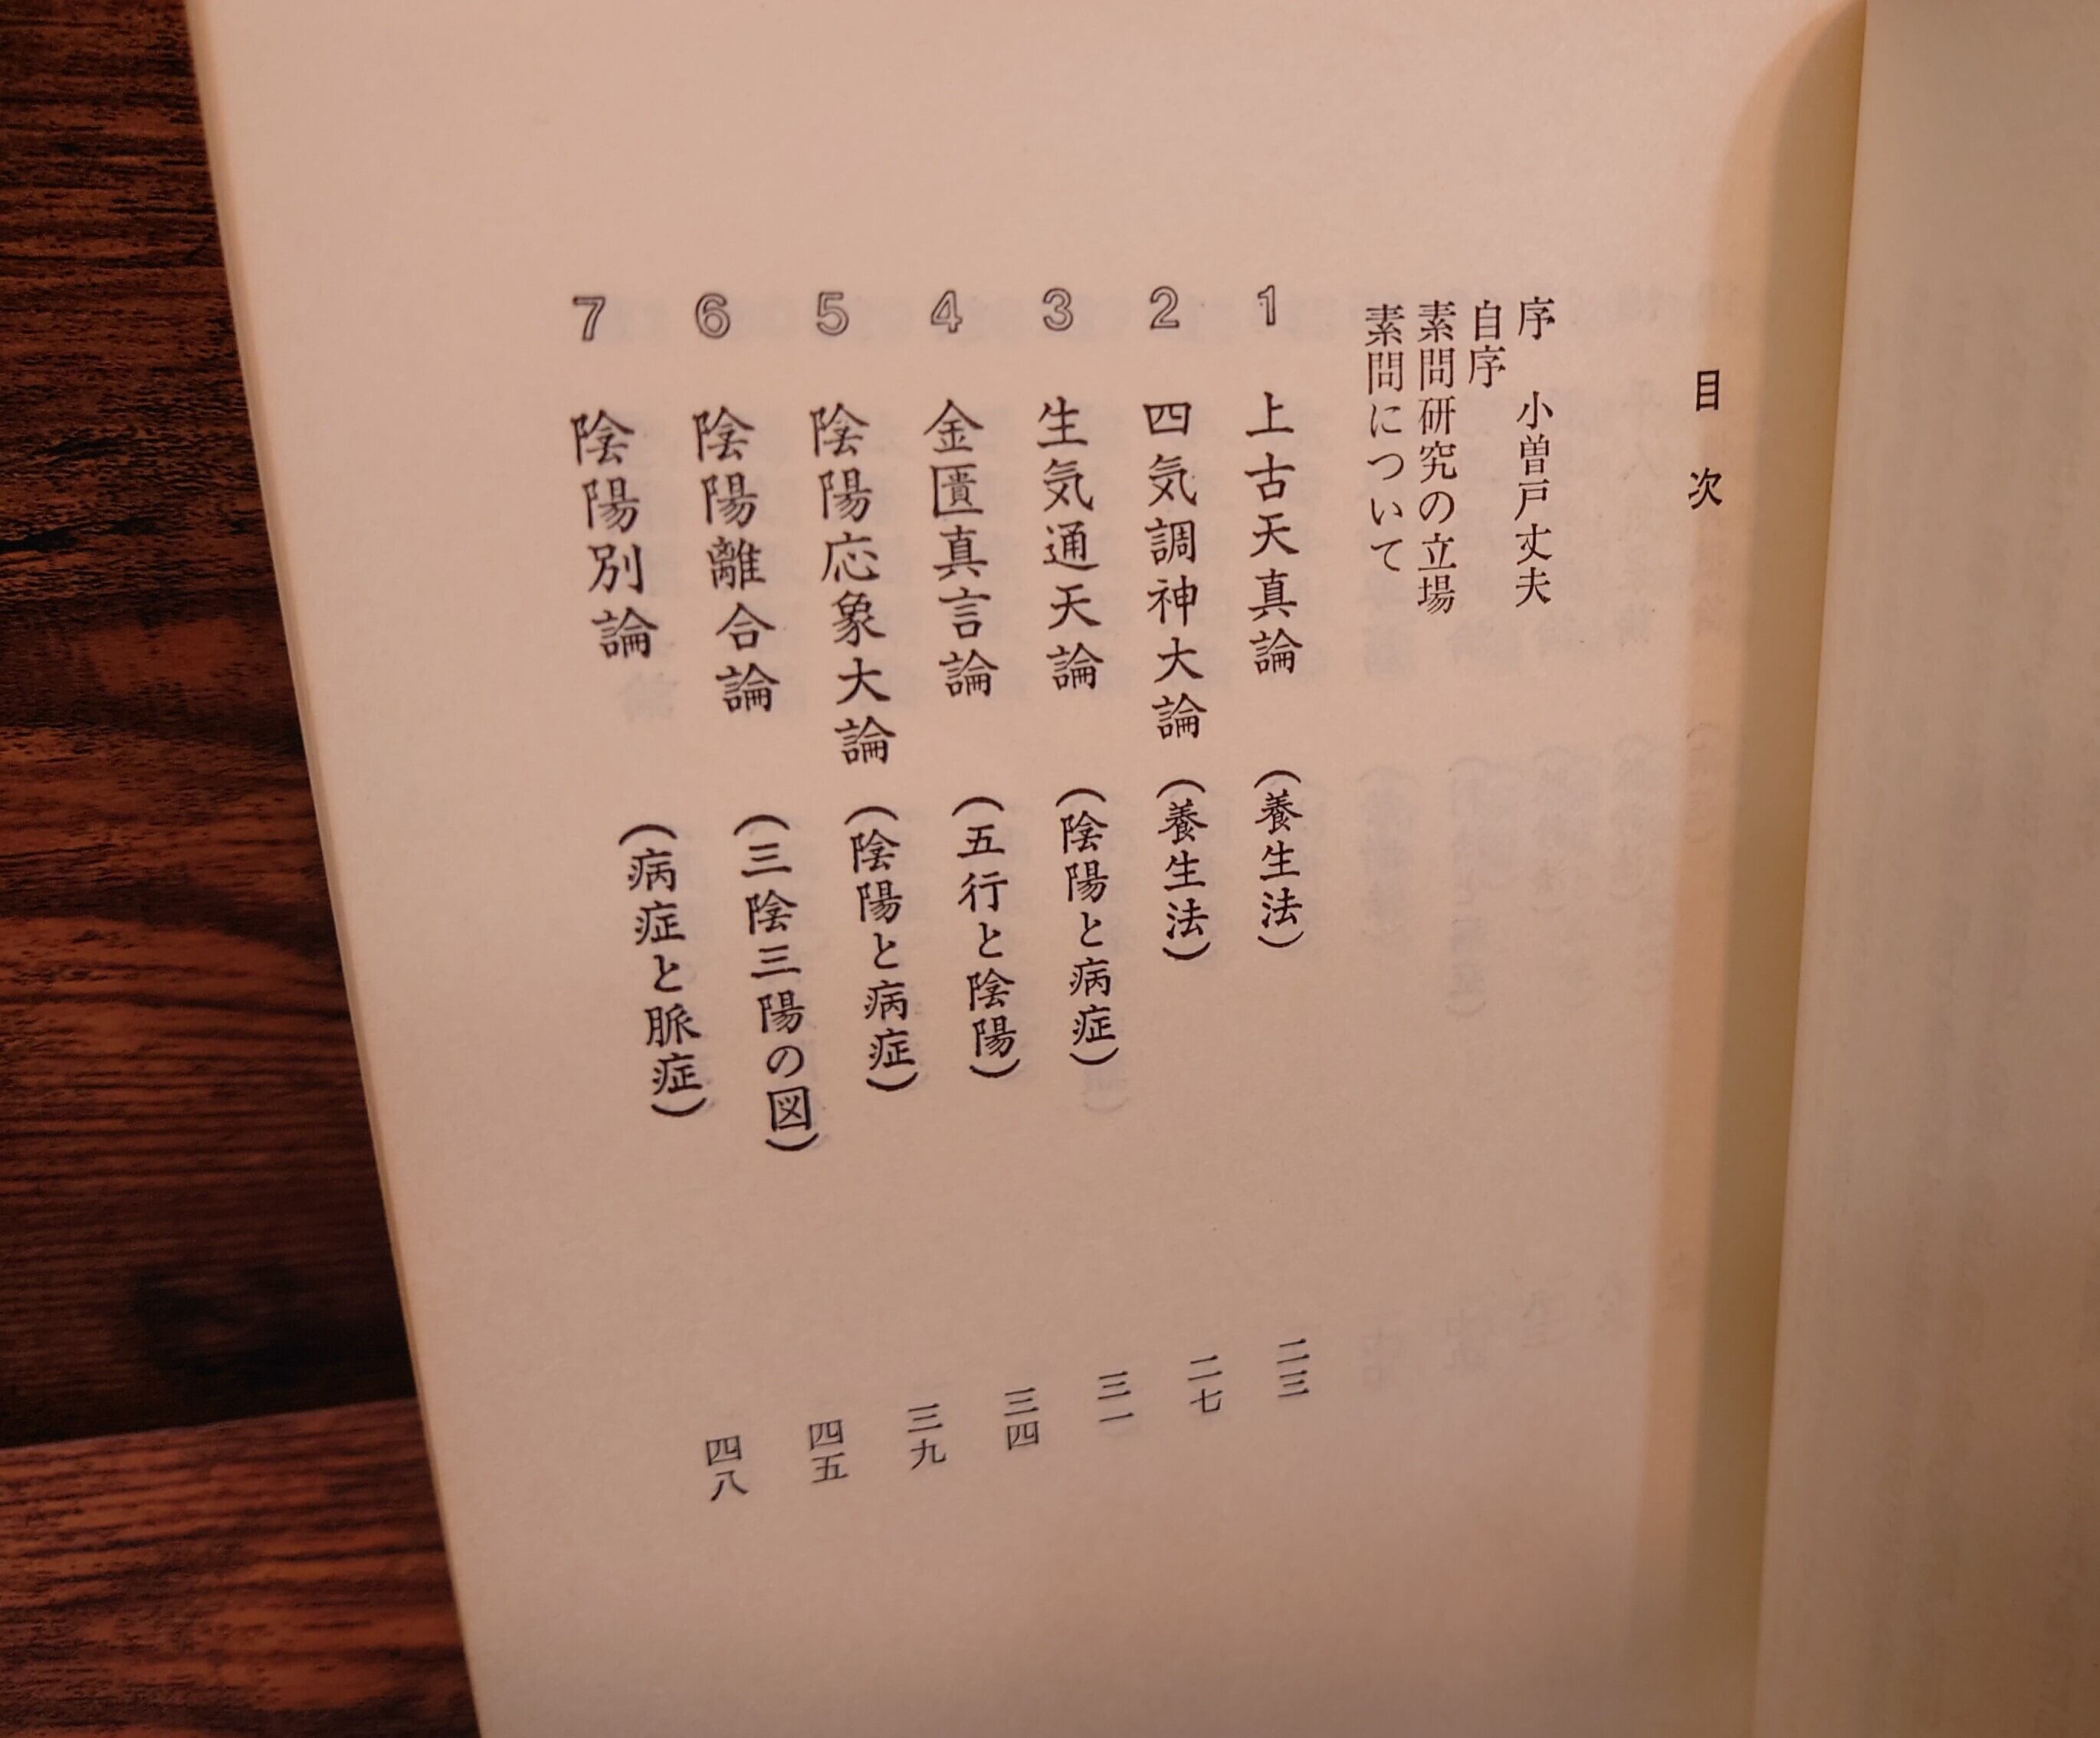 目次
序　小曽戸丈夫
自序
素問研究の立場
素問について
1　上古天真論　（養生法）　二三
2　四気調神大論　（養生法）　二七
3　生気通天論　（陰陽と病症）　三一
4　金匱真言論　（五行と陰陽）　三四
5　陰陽応象大論　（陰陽と病症）　三九
6　陰陽離合論　（三陰三陽の図）　四五
7　陰陽別論　（病症と脈症）　四八